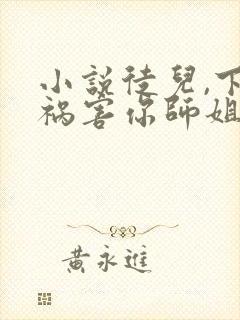 小說徒兒,下
祸害你師姐
黃永進